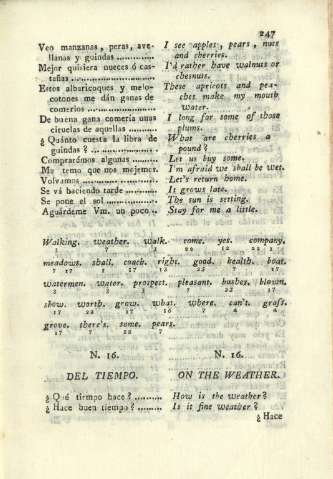 247
Veo manzanas, peras, ave- I see apples, pears, nuts
llanas y guindas ............. and cherries.
Mejor quisiera nueces ó cas- I'd rather have walnuts or
tañas ............. chesnuts.
Estos albaricoques y melo- These apricots and pea-
cotones me dán ganas de ches make my mouth
comerlos ............. water.
De buena gana comería unas I long for some of those
ciruelas de aquellas ............. plums.
¿ Quánto cuesta la libra de What are cherries a
guindas ? ............. pound ?
Comprarémos algunas ......... Let us buy some.
Me temo que nos mojemos. I'm afraid we shall be wet.
Volvamos ............. Let's return home.
Se vá haciendo tarde ......... It grows late.
Se pone el sol ............. The sun is setting.
Aguárdeme Vm. un poco .. Stay for me a little.
Walking. weather. walk. come. yes. company.
meadows. shall. coach. right. good. health. boat.
watermen. water. prospect. pleasant. bushes. blown.
show. worth. grow. what. where. can't. grass.
grove. there's. some. pears.
N. 16. N. 16.
DEL TIEMPO. ON THE WEATHER.
¿ Qué tiempo hace ? .......... How is the weather ?
¿ Hace buen tiempo ? ......... Is it fine weather ?
¿ Hace